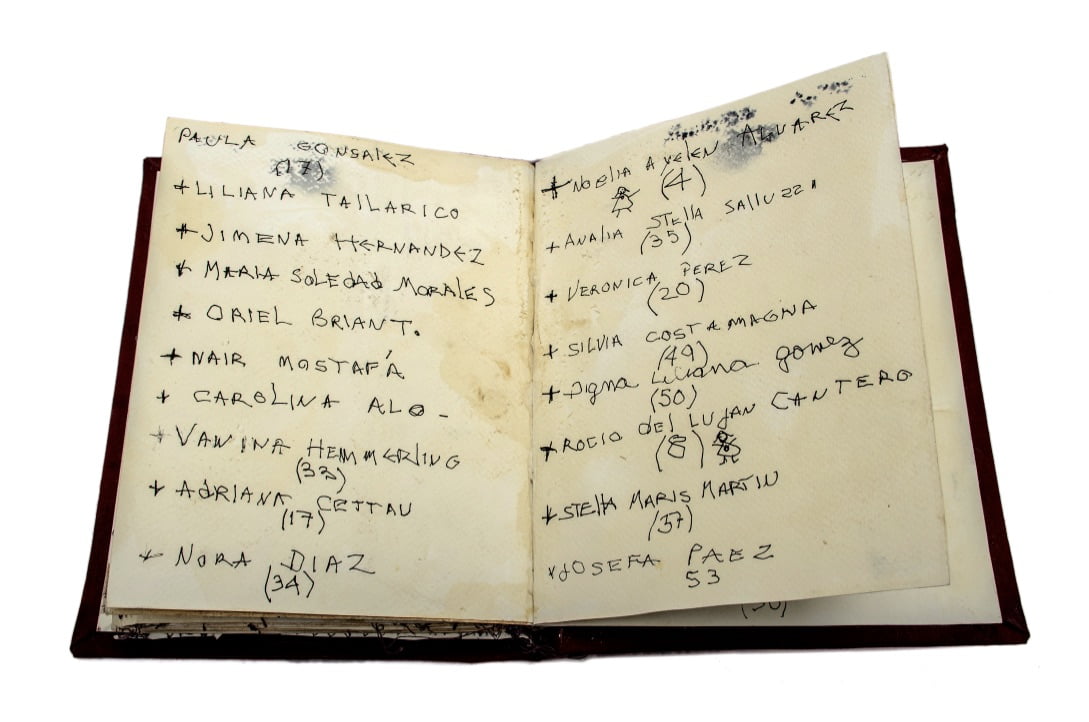 PAULA GONSALEZ
(17)
+ LILIANA TAILARICO
+ JIMENA HERNANDEZ
+ MARIA SOLEDAD MORALES
+ ORIEL BRIANT.
+ NAIR MOSTAFÁ
+ CAROLINA ALO -
+ VANINA HEMMERLING
(33)
+ ADRIANA CETTAU
(17)
+ NORA DIAZ
(34)
+ NOELIA AYELEN ALVAREZ
(4)
+ ANALIA STELLA SALLUZZI
(35)
+ VERONICA PEREZ
(20)
+ SILVIA COSTAMAGNA
(49)
+ Digna Liliana gomez
(50)
+ ROCIO del LUJAN CANTERO
(8)
+ STELLA MARIS MARTIN
(37)
+ JOSEFA PAEZ
53